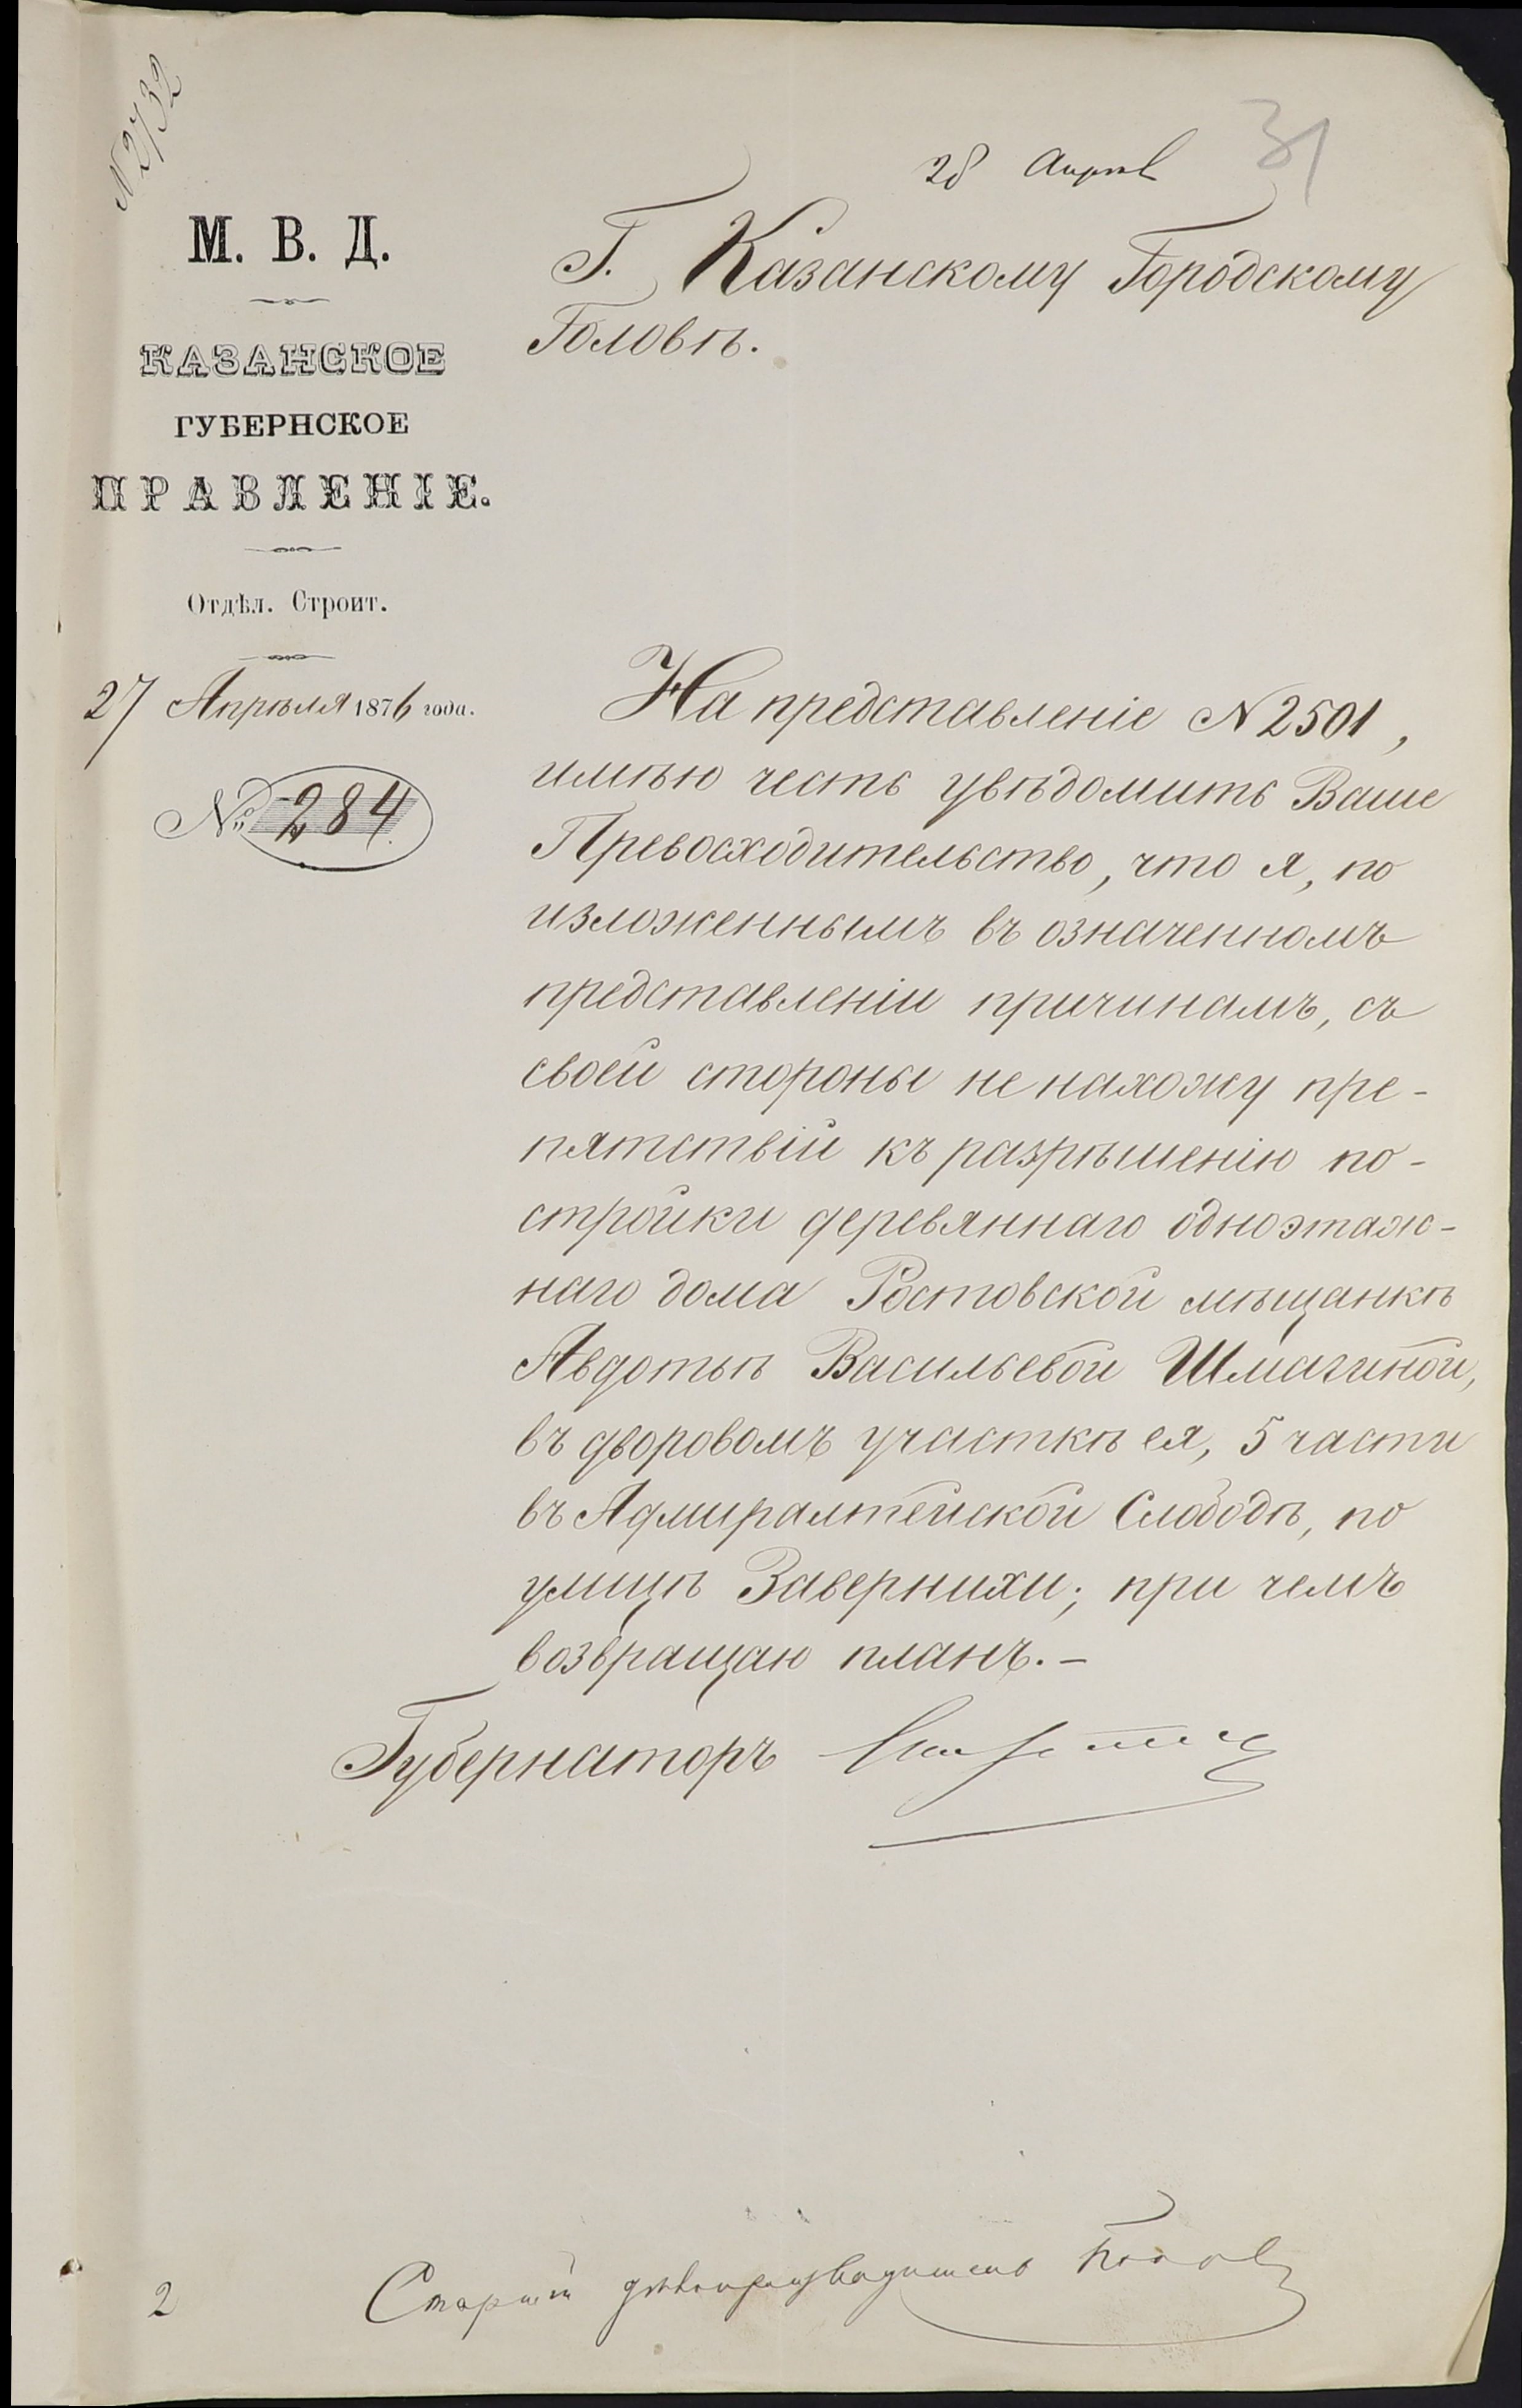 N 2732
28 Апрѣл
31
М. В. Д.
КАЗАНСКОЕ
ГУБЕРНСКОЕ
ПРАВЛЕНІЕ.
Отдѣл. Строит.
27 Апрѣля 1876 года.
№ 284
Г. Казанскому Городскому
Головѣ.
На представленіе N 2501,
имѣю честь увѣдомить Ваше
Превосходительство, что я, по
изложеннымъ въ означенномъ
представленіи причинамъ, съ
своей стороны не нахожу пре-
пятствій къ разрѣшенію по-
стройки деревяннаго одноэтаж-
наго дома Ростовской мѣщанкѣ
Авдотьѣ Васильевой Шмагиной,
въ дворовомъ участкѣ ея, 5 части
въ Адмиралтейской Слободѣ, по
улицѣ Завернихи; при чемъ
возвращаю планъ.-
Губернаторъ
Старшій дѣлопроизводитель Попов
2